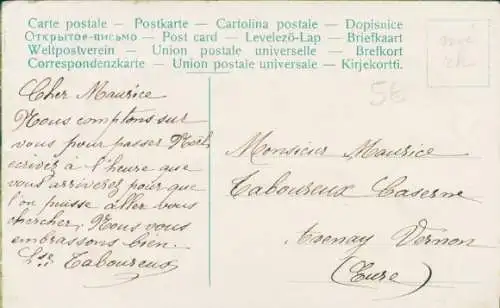 Carte postale — Postkarte — Cartolina postale — Dopisnice
Открытое-письмо — Post card — Levelező-Lap — Briefkaart
Weltpostverein — Union postale universelle — Brefkort
Correspondenzkarte — Union postale universale — Kirjekortti.
5€
Cher Maurice
Nous comptons sur
vous pour passer Noël
écrivez à l'heure que
vous arriverez pour que
l'on puisse aller vous
chercher, Nous vous
embrassons bien.
Taboureux
Monsieur Maurice
Taboureux Caserne
Avenay Vernon
(Eure)